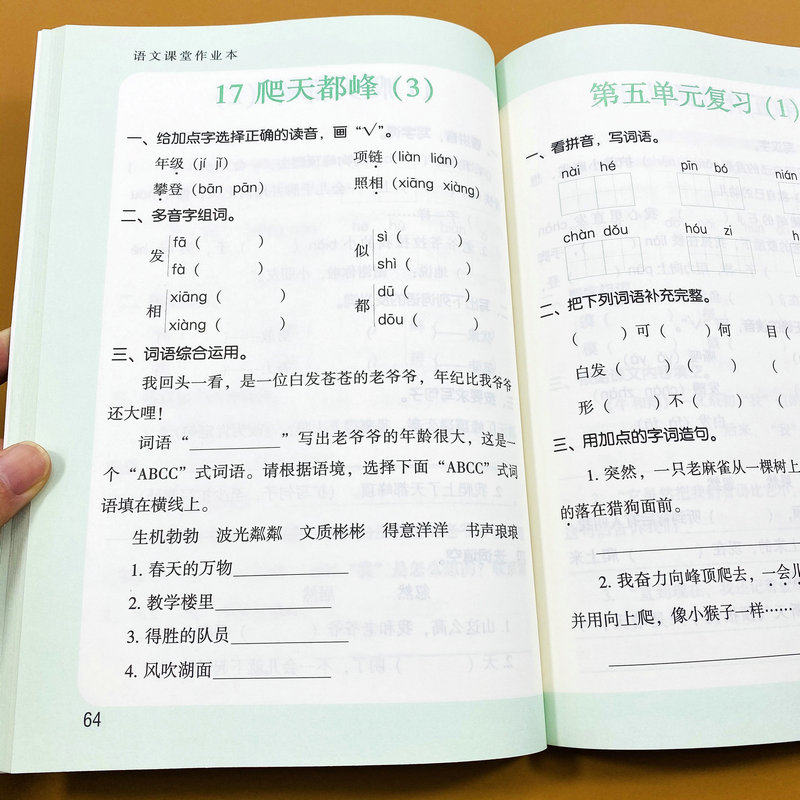 语文课堂作业本
17 爬天都峰（3）
一、给加点字选择正确的读音，画“√”。
年级（jí jǐ） 项链（liàn lián）
攀登（bān pān） 照相（xiāng xiàng）
二、多音字组词。
发 fā（ ） fà（ ） 似 sì（ ） shì（ ）
相 xiāng（ ） xiàng（ ） 都 dū（ ） dōu（ ）
三、词语综合运用。
我回头一看，是一位白发苍苍的老爷爷，年纪比我爷爷
还大哩！
词语“________”写出老爷爷的年龄很大，这是一
个“ABCC”式词语。请根据语境，选择下面“ABCC”式词
语填在横线上。
生机勃勃 波光粼粼 文质彬彬 得意洋洋 书声琅琅
1. 春天的万物________
2. 教学楼里________
3. 得胜的队员________
4. 风吹湖面________
64
第五单元复习（1）
一、看拼音，写词语。
nài hé pīn bó nián
chàn dǒu hóu zi
二、把下列词语补充完整。
（ ）可（ ）何 目（
白发（ ）（ ）（
形（ ）不（ ）（
三、用加点的字词造句。
1. 突然，一只老麻雀从一棵树上
的落在猎狗面前。
2. 我奋力向峰顶爬去，一会儿
并用向上爬，像小猴子一样……